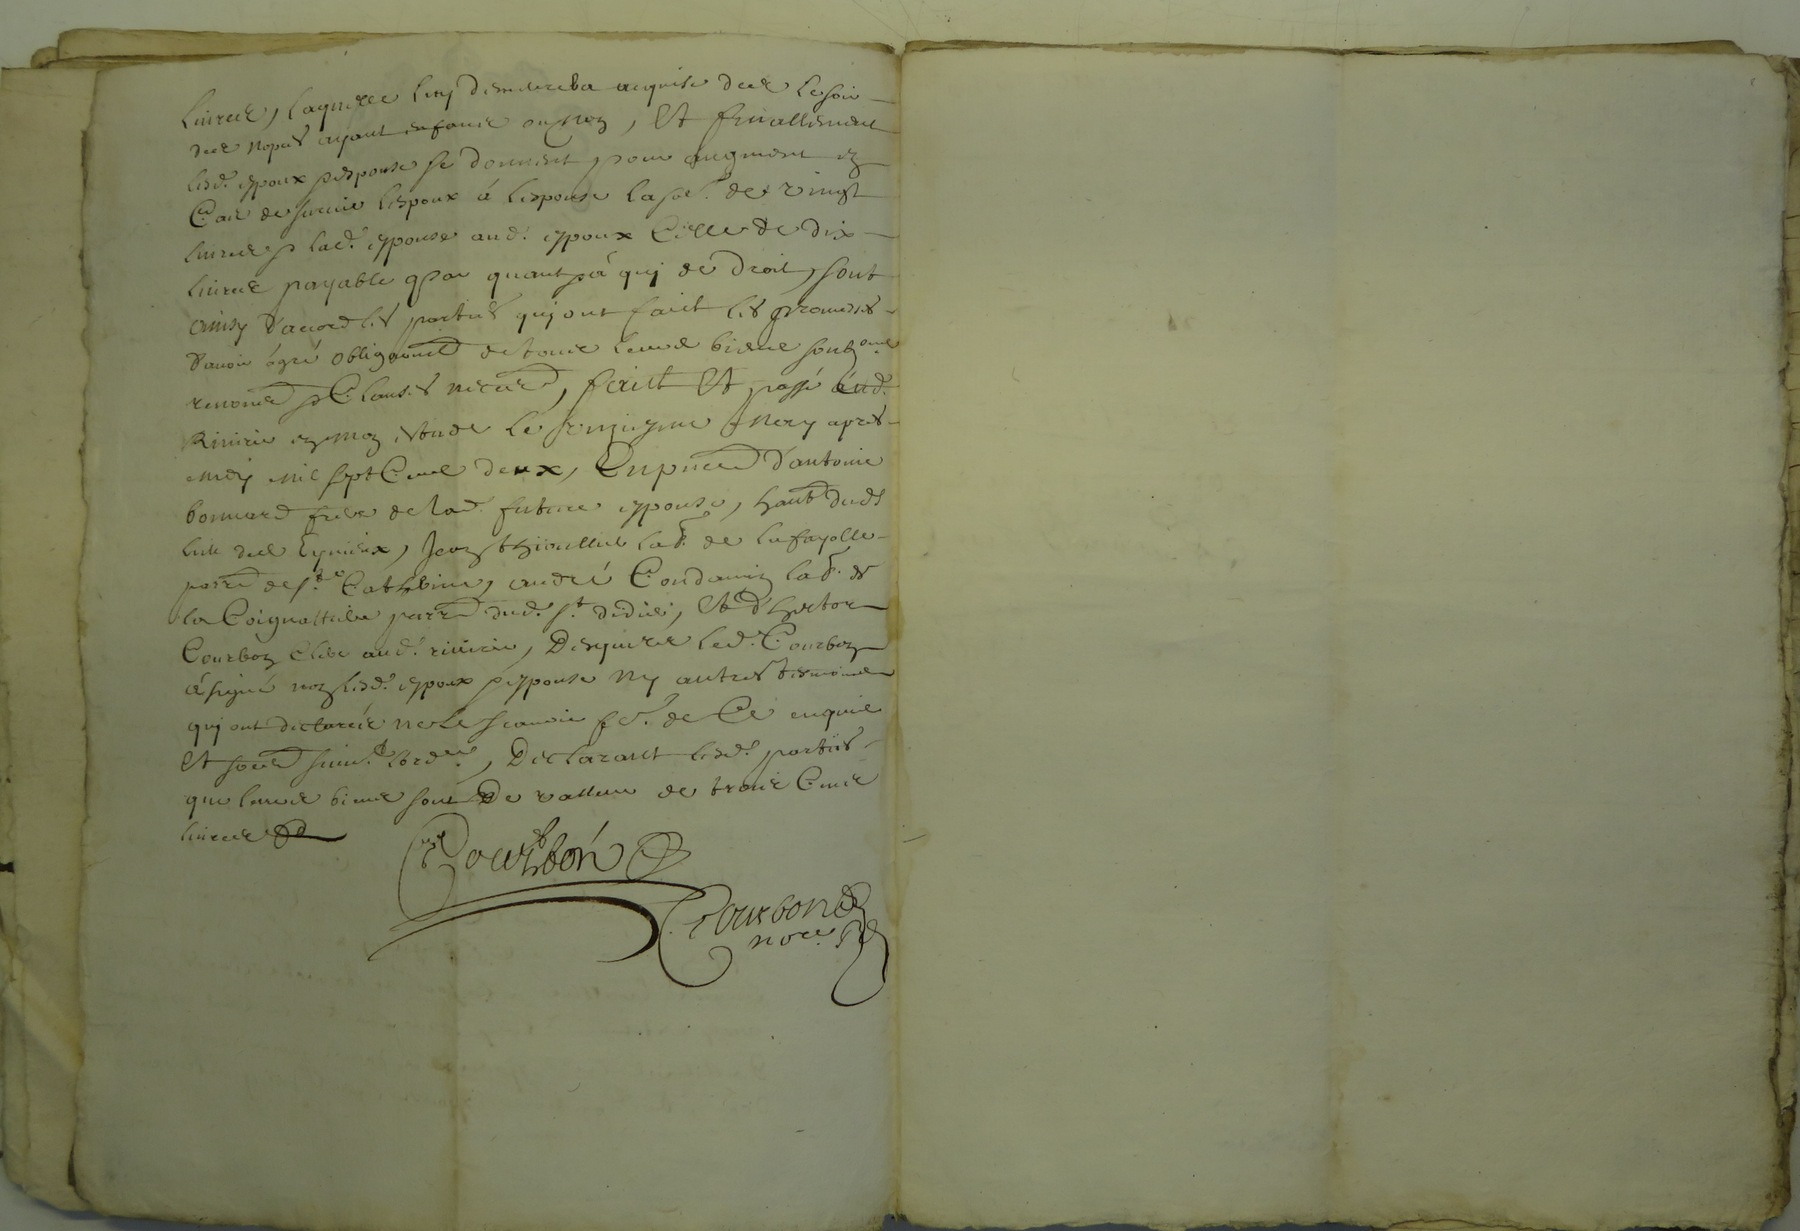 livres, laquelle luy demeurera acquise des le soir
des nopces ayant enfans ou non, Et finallement
lesd. espoux & espouse se donnent pour augment &
Cas de survie lespoux à lespouse la so.e de vingt
livres & lad. espouse aud. espoux Celle de dix
livres payable q par quant & à quj de droit, sont
ainsy d'acord les parties quj ont faict les promesses
d'avoir à gré obliga de tous leurs biens
renon & Clauses neces, faict Et passé aud.
Rivirie en mon estude le mary apres
midy mil sept Cens deux, En pnce d'antoine
bonnard frere de lad. future espouse, habt dud
lieu des Eynieux, Jean thiollier lab.r de la fayolle
parr de s.te Catherine, andré Condamin lab.r de
la Coignattiere parr dud. s.t didier, Et d'hector
Courbon Clerc aud. rivirie, Desquels led. Courbon
à signé non lesd. espoux & espouse ny autres tesmoins
quj ont declarés ne le scavoir fe. de Ce enquis
Et so suiv.t lord.ce, Declarant lesd. parties
que leurs biens sont de valleur de trois Cens
livres
Courbon
Courbon
no.re